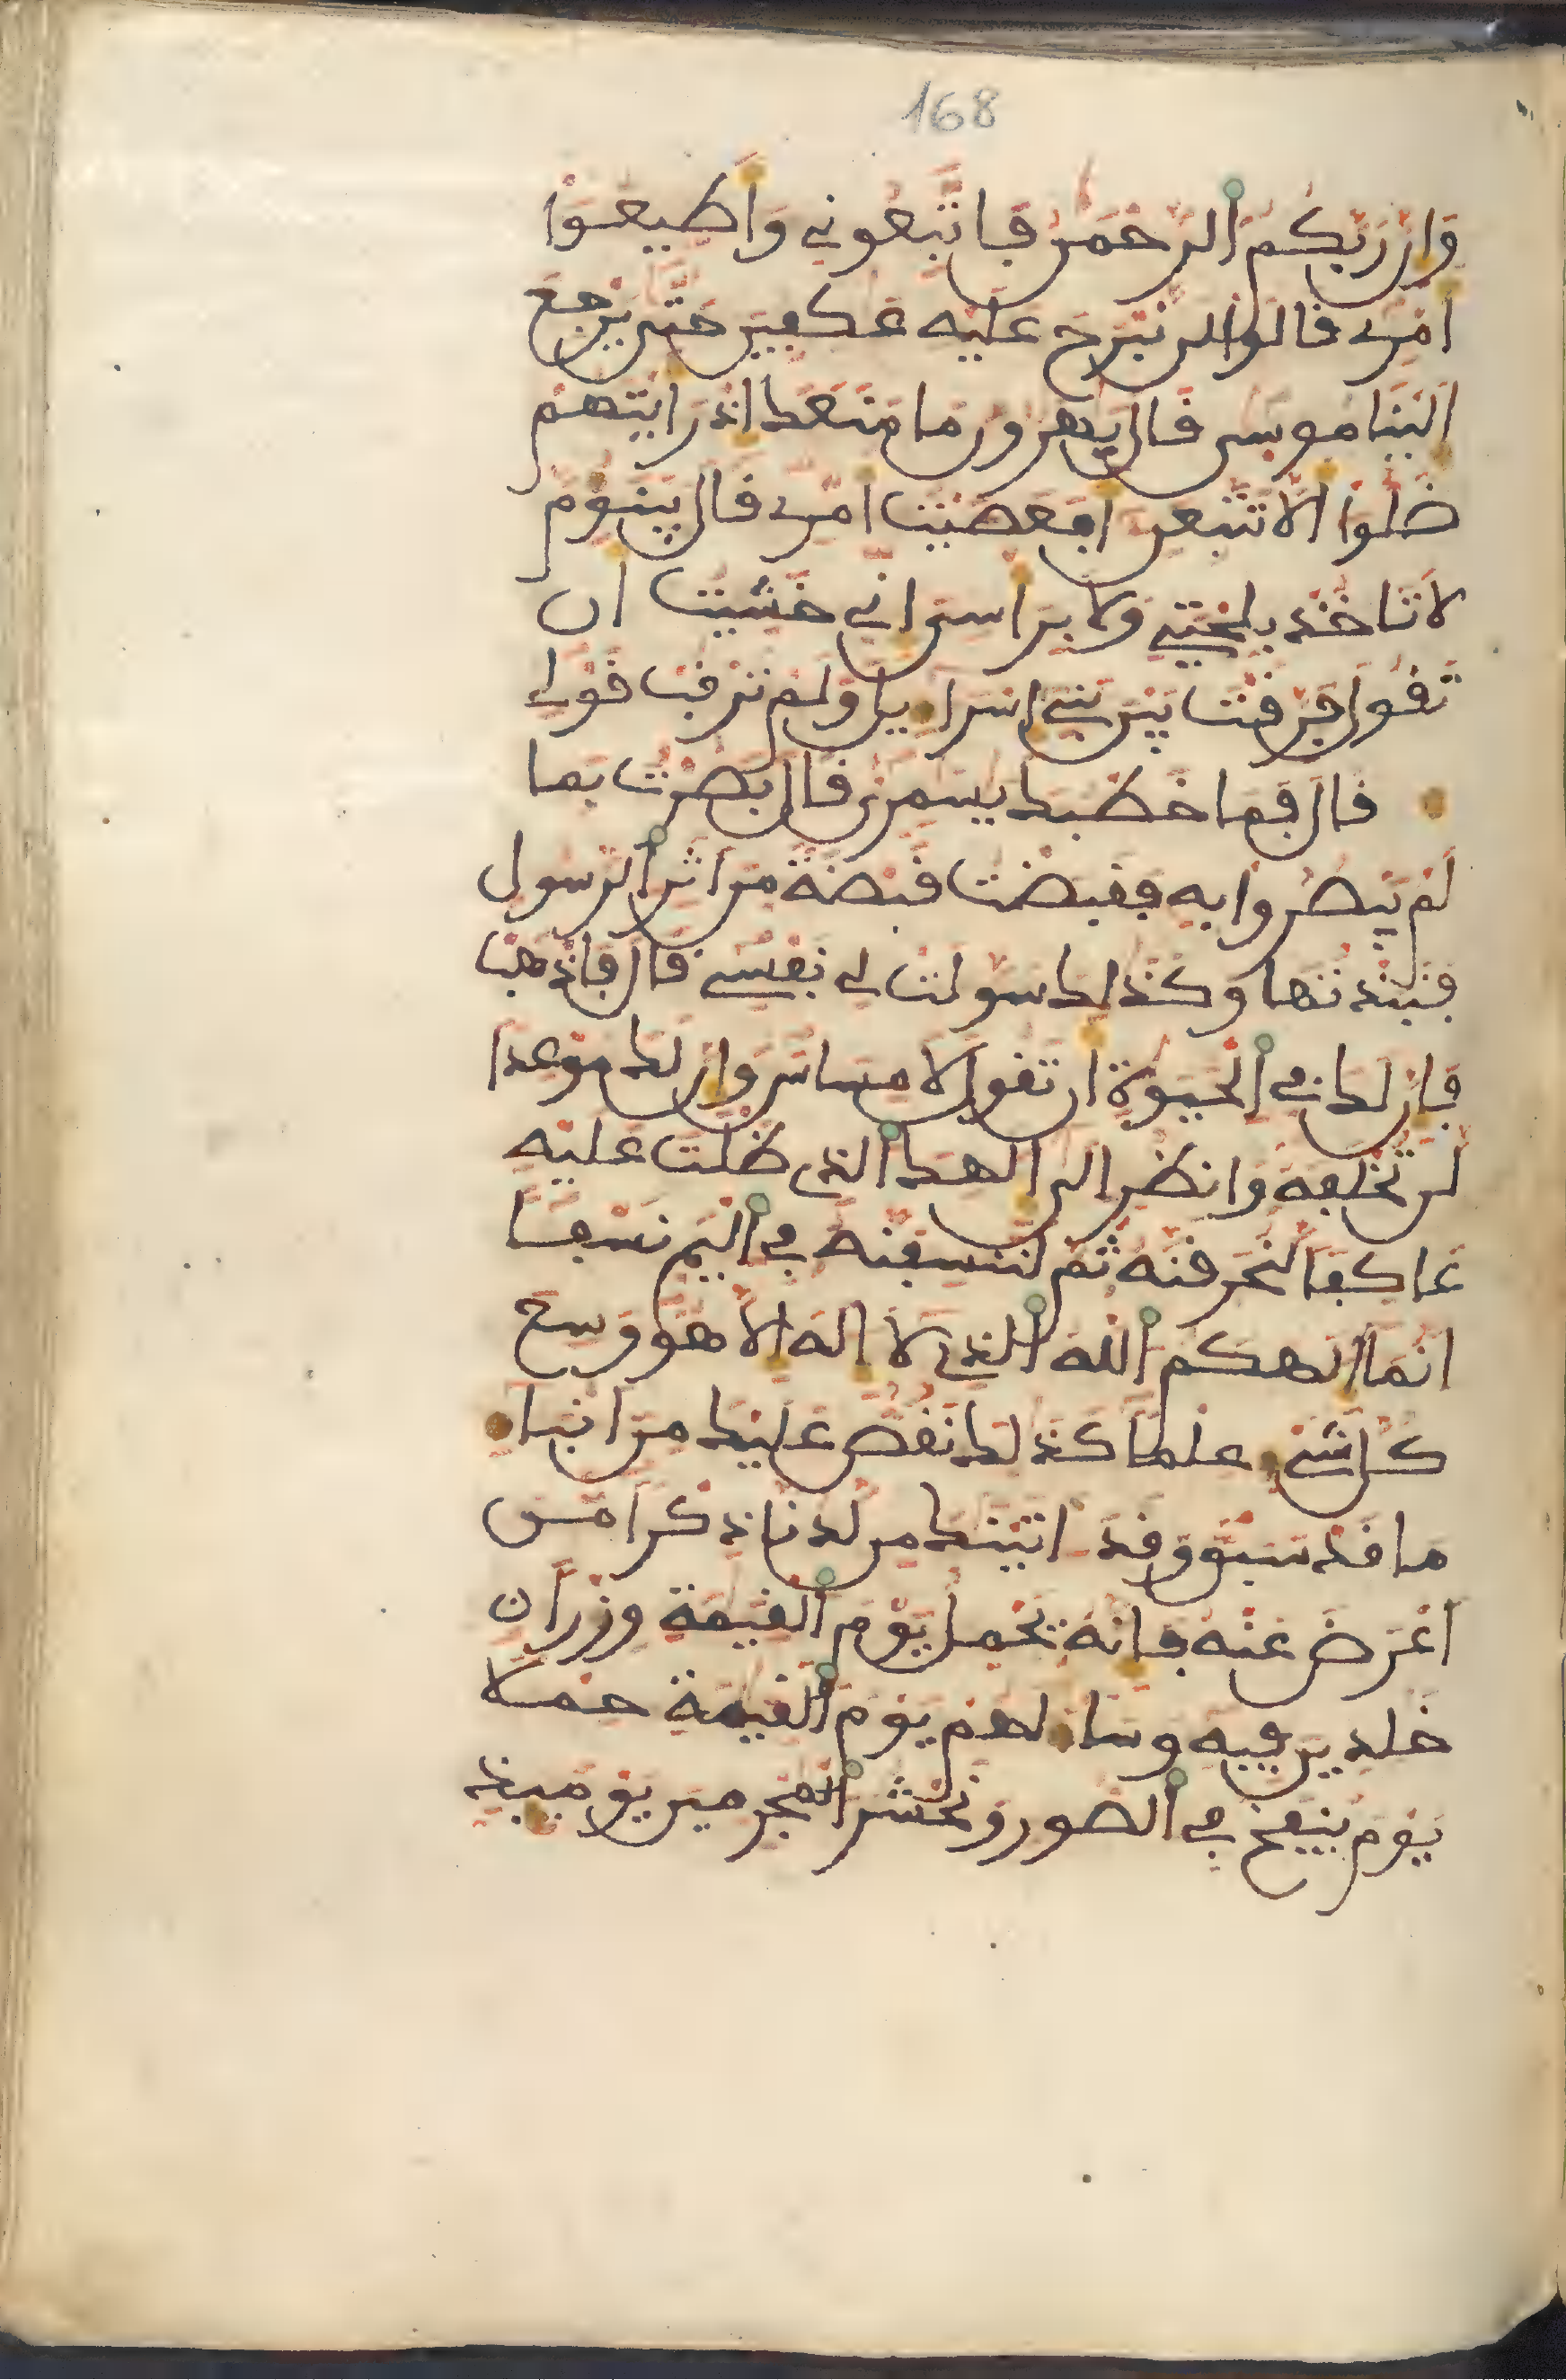 168
وان ربكم الرحمن فاتبعوني وأطيعوا
امرى قالوا لن نبرح عليه عكفين حتى يرجع
الينا موسى قال يهرون ما منعك اذ رايتهم
ضلوا الا تتبعن افعصيت امرى قال يبنؤم
لا تاخذ بلحيتي ولا براسى اني خشيت ان
تقول فرقت بين بني اسراءيل ولم ترقب قولي
قال فما خطبك يسمرى قال بصرت بما
لم يبصروا به فقبضت قبضة من اثر الرسول
فنبذتها وكذلك سولت لي نفسي قال فاذهب
فان لك في الحيوة ان تقول لا مساس وان لك موعدا
لن تخلفه وانظر الى الهك الذى ظلت عليه
عاكفا لنحرقنه ثم لننسفنه في اليم نسفا
انما الهكم الله الذي لا اله الا هو وسع
كل شيء علما كذلك نقص عليك من انباء
ما قد سبق وقد اتينك من لدنا ذكرا من
اعرض عنه فانه يحمل يوم القيمة وزرا ن
خلدين فيه وساء لهم يوم القيمة حملا
يوم ينفخ في الصور ونحشر المجرمين يوميذ